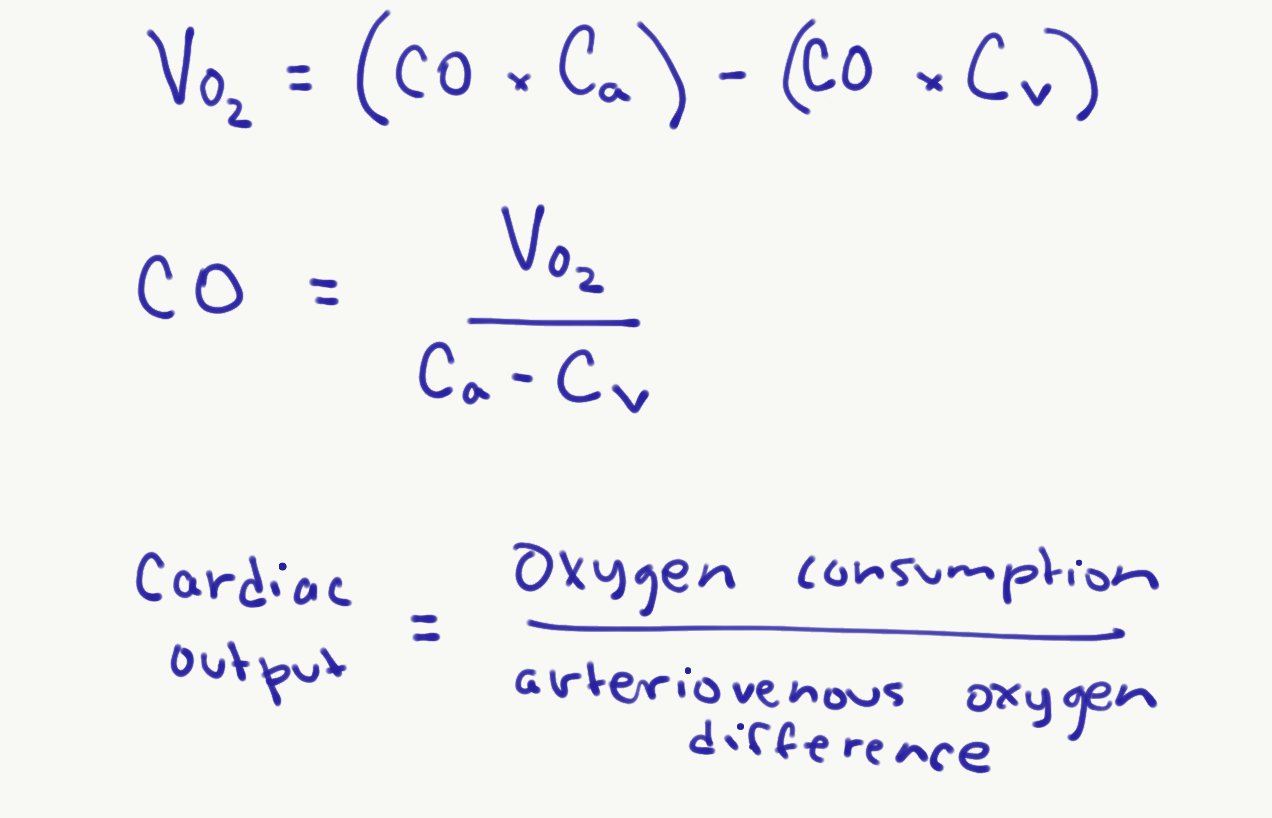 V_O₂ = (CO × C_a) - (CO × C_v)
CO = V_O₂ / (C_a - C_v)
Cardiac output = Oxygen consumption
arteriovenous oxygen
difference